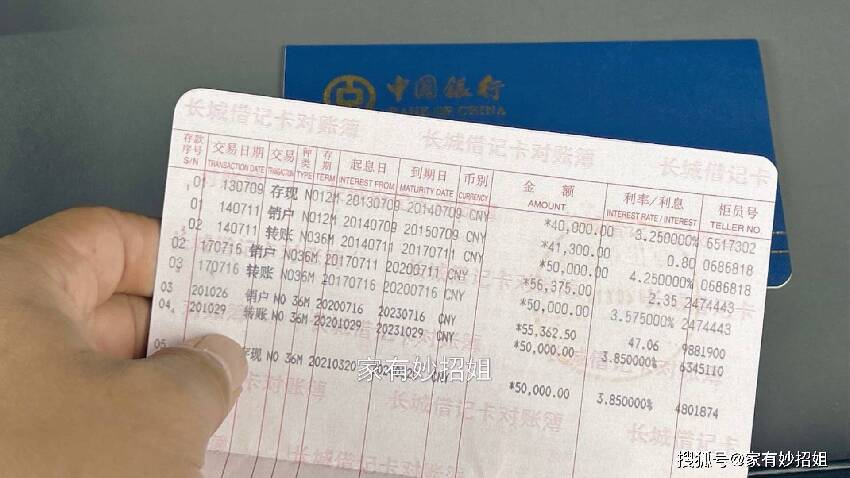 中国银行
BANK OF CHINA
长城借记卡对账簿 长城借记卡对账簿 长城借记卡
存款序号 交易日期 交易 种类 存期 起息日 到期日 币别 金额 利率/利息 柜员号
S/N TRANSACTION DATE TRANSACTION TYPE TERM INTEREST FROM MATURITY DATE CURRENCY AMOUNT INTEREST RATE / INTEREST TELLER NO.
01 130709 存现 NO12M 20130709 20140709 CNY *40,000.00 3.250000% 6517302
01 140711 销户 NO12M 20140709 20150709 CNY *41,300.00 0.80 0686818
02 140711 转账 NO36M 20140711 20170711 CNY *50,000.00 4.250000% 0686818
02 170716 销户 NO36M 20170711 20200711 CNY *56,375.00 2.35 2474443
03 170716 转账 NO36M 20170716 20200716 CNY *50,000.00 3.575000% 2474443
03 201026 销户 NO 36M 20200716 20230716 CNY *55,362.50 47.06 9881900
04 201029 转账 NO 36M 20201029 20231029 CNY *50,000.00 3.850000% 6345110
存现 NO 36M 20210320 CNY *50,000.00 3.850000% 4801874
家有妙招姐
长城借记卡对账簿
长城借记卡
搜狐号@家有妙招姐